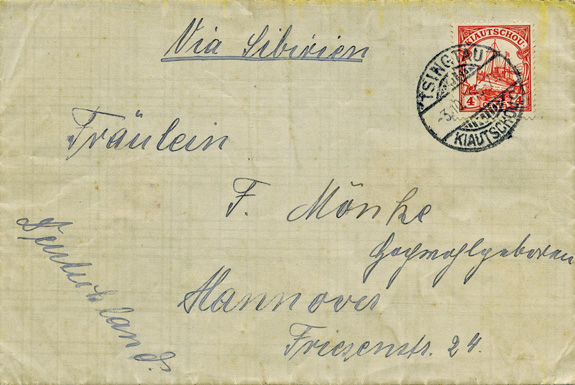 Via Sibirien
KIAUTSCHOU
4 4
TSINGTAU
KIAUTSCHOU
Fräulein
F. Mönke
Hochwohlgeboren
Hannover
Friesenstr. 24.
Deutschland.